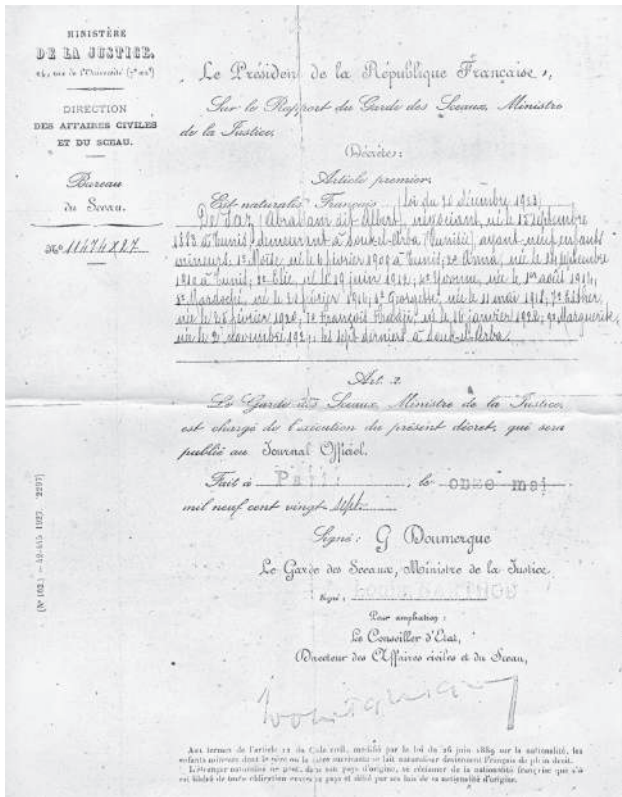 MINISTÈRE
DE LA JUSTICE.
DIRECTION
DES AFFAIRES CIVILES
ET DU SCEAU.
Bureau
du Sceau.
N° 11474X27
Le Président de la République Française,
Sur le Rapport du Garde des Sceaux, Ministre
de la Justice,
Décrète:
Article premier.
Est naturalisé Français (loi du 20 décembre 1923)
De Paz (Abraham dit Albert) négociant, né le 15 septembre
1883 à Tunis, demeurant à Souk-el-Arba (Tunisie) ayant neuf enfants
mineurs: 1° Moïse, né le 6 février 1909 à Tunis; 2° Anna, née le 14 septembre
1910 à Tunis; 3° Elie, né le 19 juin 1912; 4° Yvonne, née le 1er août 1914;
5° Mardochée, né le février 1916; 6° Georgette, née le 11 mai 1918; 7° Esther,
née le 28 février 1920; 8° François né le 16 janvier 1922; 9° Marguerite,
née le novembre les sept derniers à Souk-el-Arba.
Art. 2.
Le Garde des Sceaux, Ministre de la Justice,
est chargé de l'exécution du présent décret, qui sera
publié au Journal Officiel.
Fait à Paris, le onze mai
mil neuf cent vingt sept
Signé: G Doumergue
Le Garde des Sceaux, Ministre de la Justice
Signé:
Pour ampliation:
Le Conseiller d'Etat,
Directeur des Affaires civiles et du Sceau,
Aux termes de l'article 12 du Code civil, modifié par la loi du 26 juin 1889 sur la nationalité, les
enfants mineurs dont le père ou la mère survivante se fait naturaliser deviennent Français de plein droit.
L'étranger naturalisé ne peut, dans son pays d'origine, se réclamer de la nationalité française que s'il
est libéré de toute obligation envers ce pays et délié par ses lois de sa nationalité d'origine.